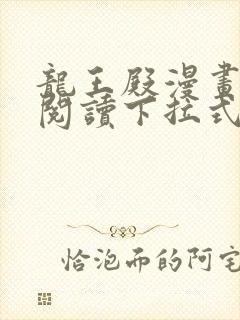 龍王殿漫畫
閱讀下拉式
恰泡而的阿宅